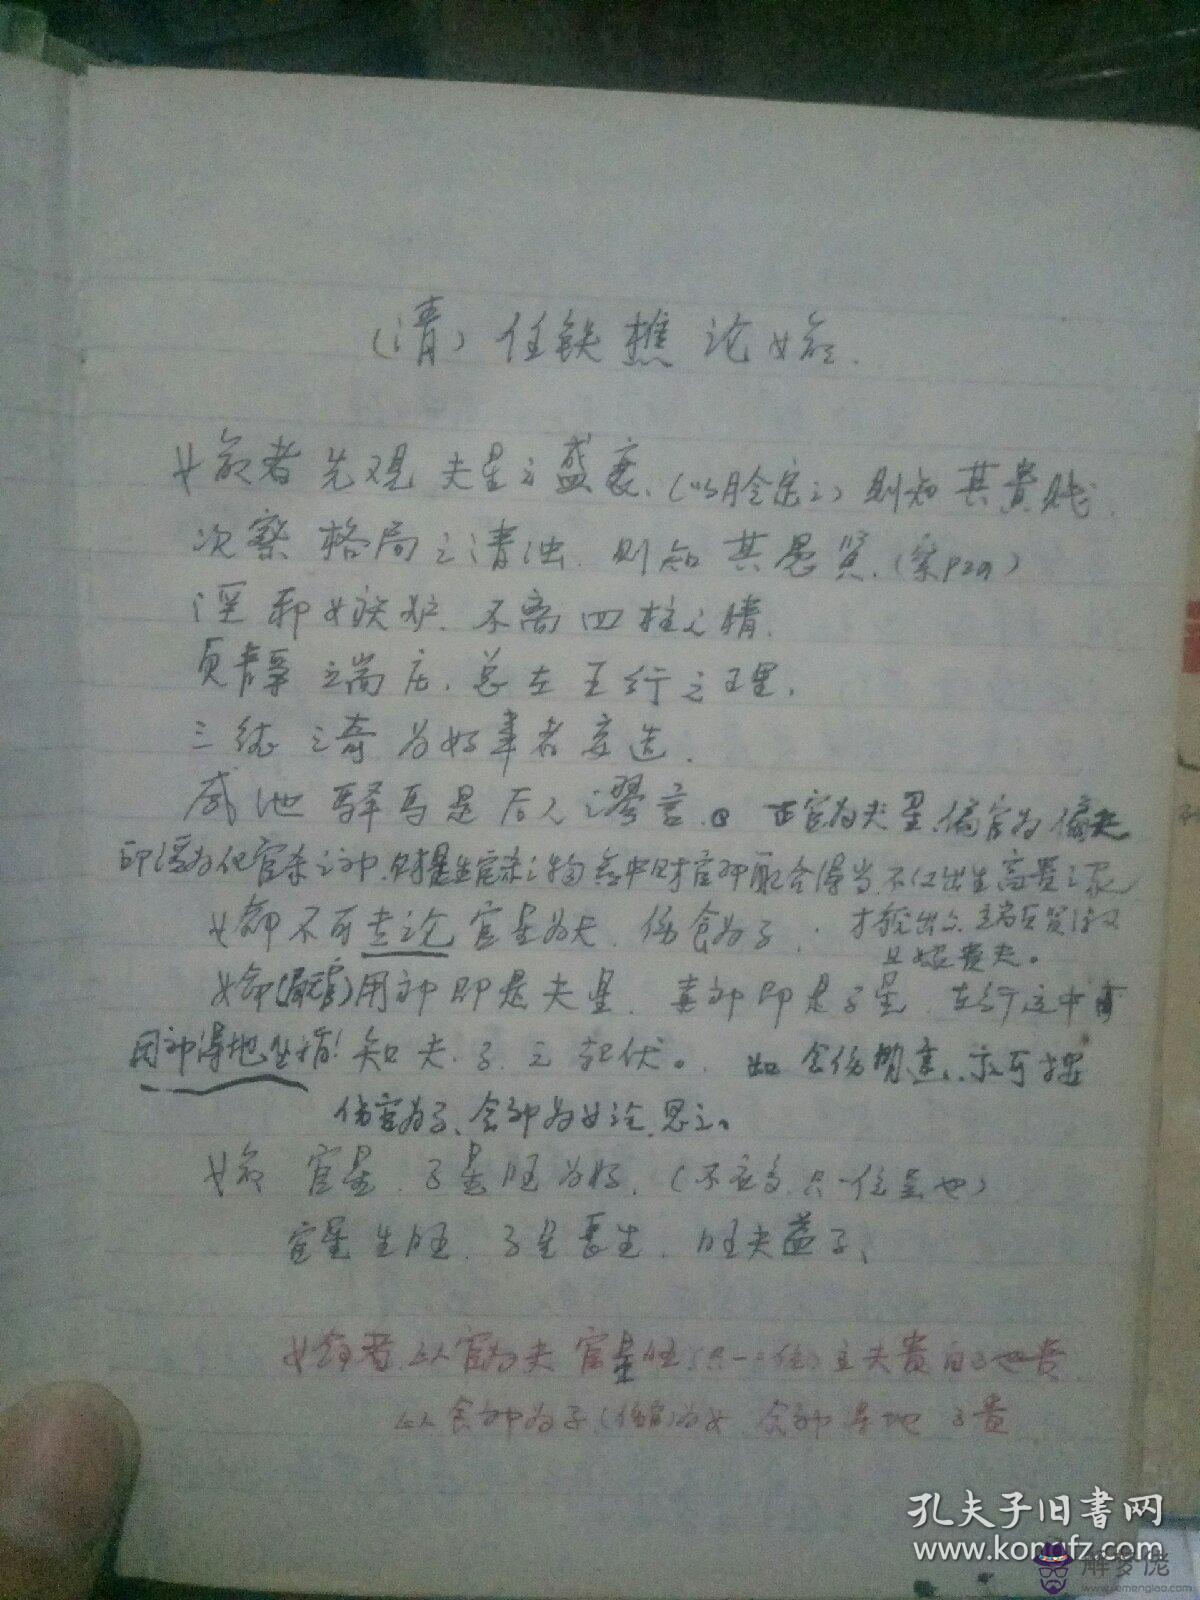 (清) 任铁樵 论女命.
女命者 先观 夫星之盛衰、(以月令定之) 则知 其贵贱.
次察 格局之清浊. 则知 其愚贤、(案P29)
淫邪 妒. 不离 四柱之情.
贞静 端庄、总在 五行之理.
三 之奇 为好事者妄造.
咸池 驿马是后人之谬言. 官为夫星、偏官为偏夫
印 为化官杀之神. 财是生官杀之物 命中财官印配合得当 不仅出生高贵之家
女命不可专论 官星为夫、伤食为子. 才 出众 端
且嫁贵夫。
女命( )用神即是夫星. 喜神即是子星. 在行运中
用神得地 知夫、子之起伏。 如 食伤 亦可
伤官为子、食神为女论.思之。
女命 官星、子星旺为好. (不 多 只一位 也)
官星生旺. 子星长生. 旺夫益子、
女命者 以官为夫 官星旺(只一 位)主夫贵 自己也贵
以食神为子(伤官)为女 食神得地 子贵
孔夫子旧书网
www.kongfz.com
解梦佬
www.jiemenglao.com